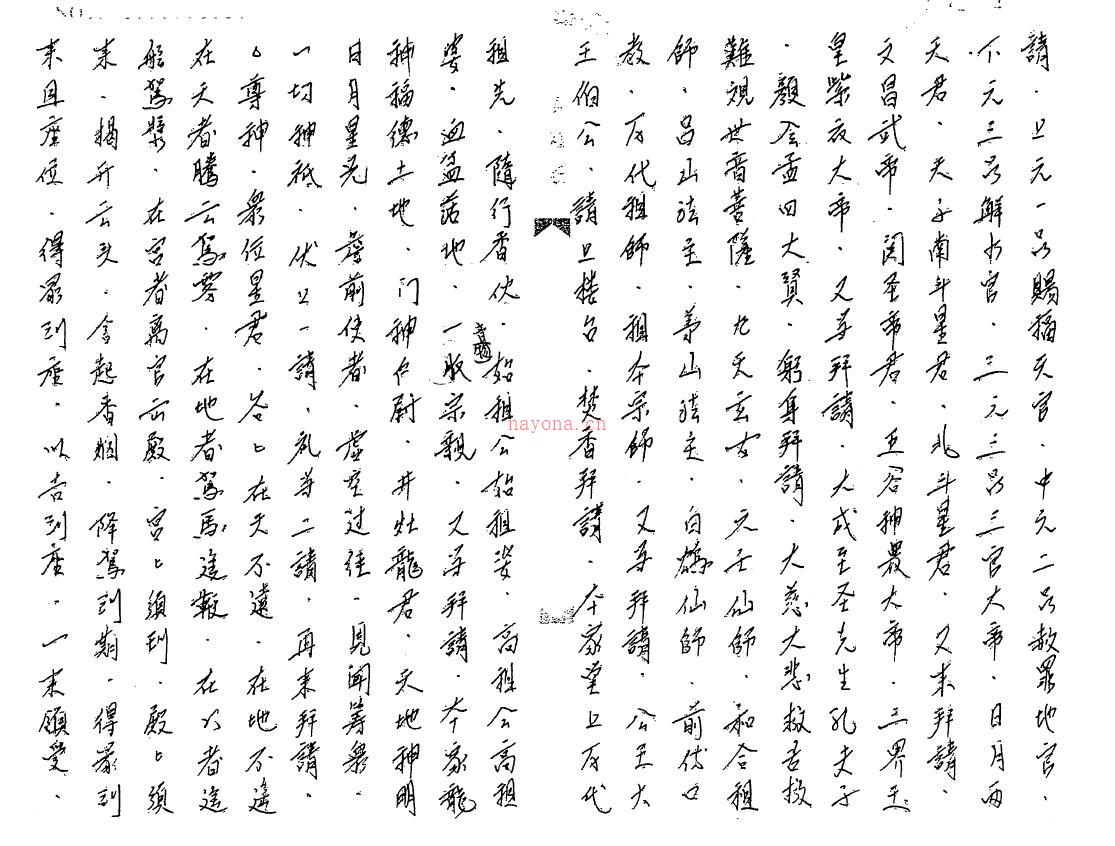 請．上元一品賜福天官．中元二品赦罪地官．
下元三品解水官．三元三品三官大帝．日月两
天君．天子南斗星君．北斗星君．又来拜請．
文昌武帝．関圣帝君．五谷神農大帝．三界玉
皇紫衣大帝．又再拜請．大成至圣先生孔夫子
．顏会孟四大賢．躬身拜請．大慈大悲救苦救
難視世音菩薩．九天玄女．元壬仙師．和合祖
師．吕山法主．茅山法主．白鶴仙師．前传口
教．历代祖師．祖本宗師．又再拜請．公王大
王伯公．請上楼台．焚香拜請．本家堂上历代
祖先．隨行香伙．始祖公始祖婆．高祖公高祖
婆．血盆落地．一収宗親．又再拜請．本家龍
神福德土地．门神户尉．井灶龍君．天地神明
日月星光．詹前使者．虚空过往．見聞筹衆
一切神祇．伏以一請．礼再二請．再来拜請．
尊神．衆位星君．在天不遠．在地不遙
在天者騰云駕雾．在地者駕馬進報．在水者進
船駕漿．在宫者离宫云殿．宫须到．殿须
来．揭升云头．含起香烟．降駕到期．得衆到
来且座位．得衆到座．以吉到座．一来領受．
hayona.cn